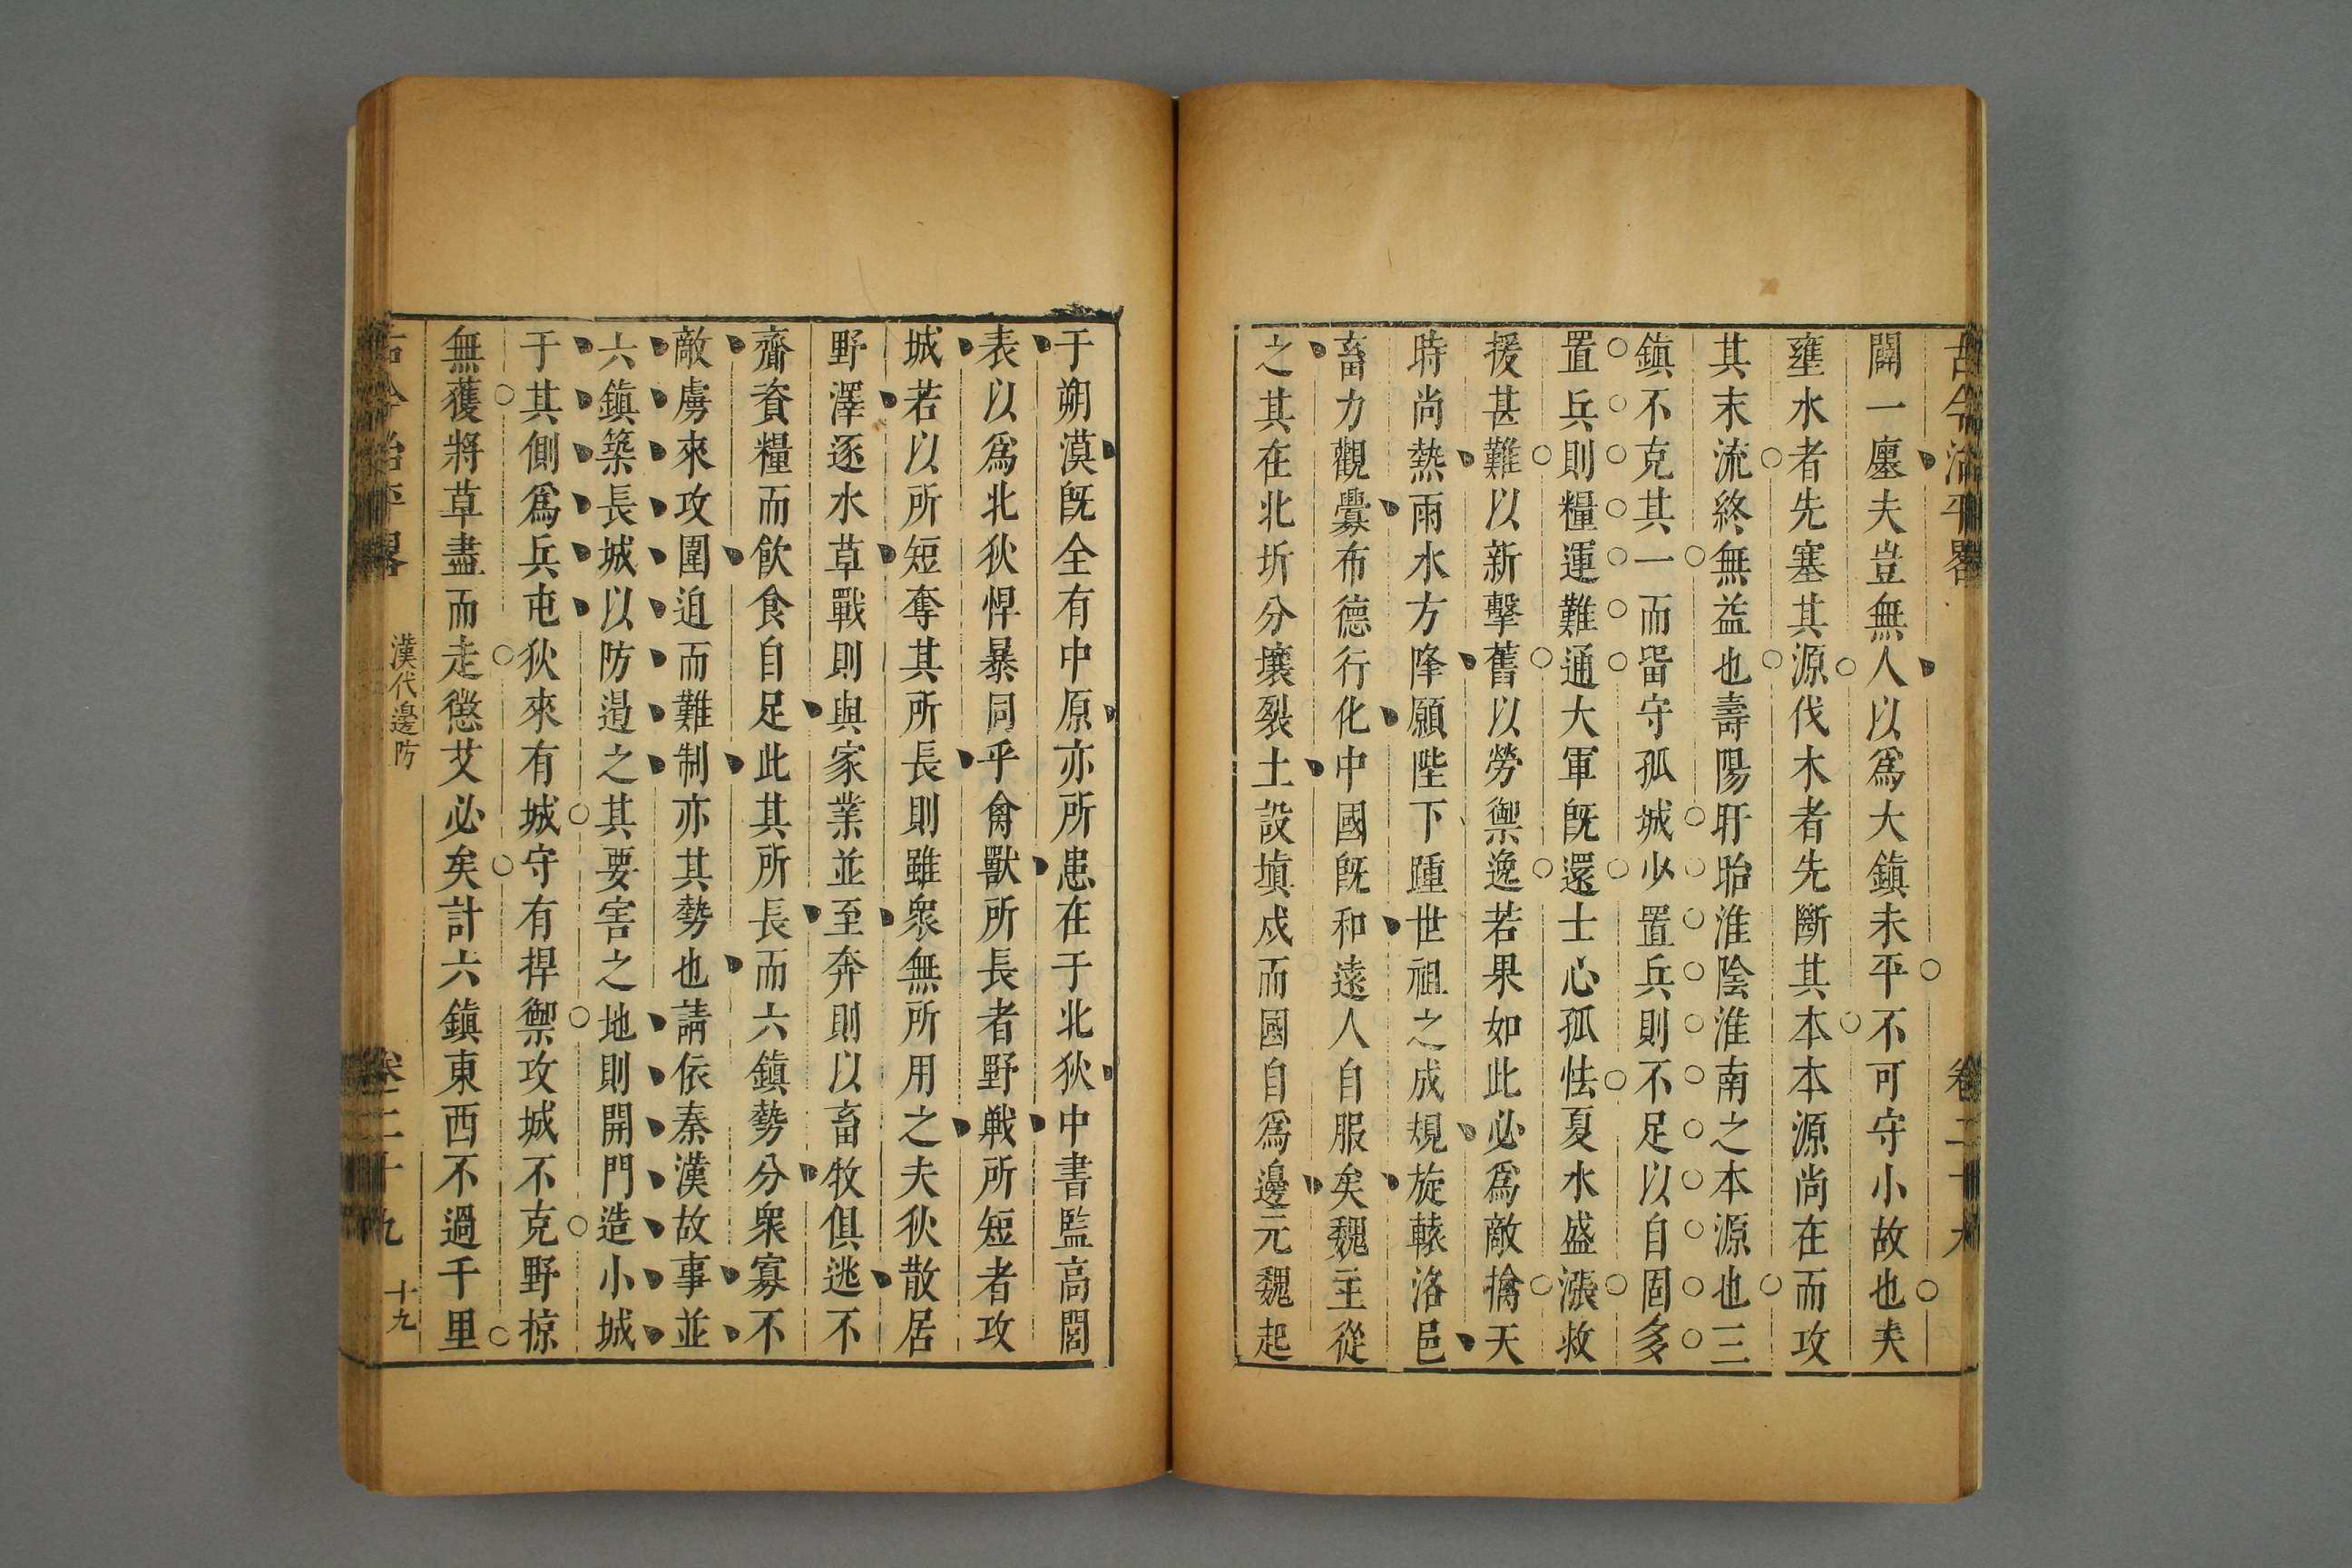 古今治平畧
卷二十九
闢一廛夫豈無人以爲大鎮未平不可守小故也夫
壅水者先塞其源伐木者先斷其本本源尚在而攻
其末流終無益也壽陽盱眙淮陰淮南之本源也三
鎮不克其一而畱守孤城少置兵則不足以自固多
置兵則糧運難通大軍旣還士心孤怯夏水盛漲救
援甚難以新擊舊以勞禦逸若果如此必爲敵擒天
時尚熱雨水方降願陛下踵世祖之成規旋轅洛邑
畜力觀釁布德行化中國旣和遠人自服矣魏主從
之其在北圻分壤裂土設塡戍而國自爲邊元魏起
于朔漠旣全有中原亦所患在于北狄中書監高閭
表以爲北狄悍暴同乎禽獸所長者野戰所短者攻
城若以所短奪其所長則雖衆無所用之夫狄散居
野澤逐水草戰則與家業並至奔則以畜牧俱逃不
齎資糧而飲食自足此其所長而六鎮勢分衆寡不
敵虜來攻圍迫而難制亦其勢也請依秦漢故事並
六鎮築長城以防遏之其要害之地則開門造小城
于其側爲兵屯狄來有城守有捍禦攻城不克野掠
無獲將草盡而走懲艾必矣計六鎮東西不過千里
古今治平畧
漢代邊防
卷二十九
十九